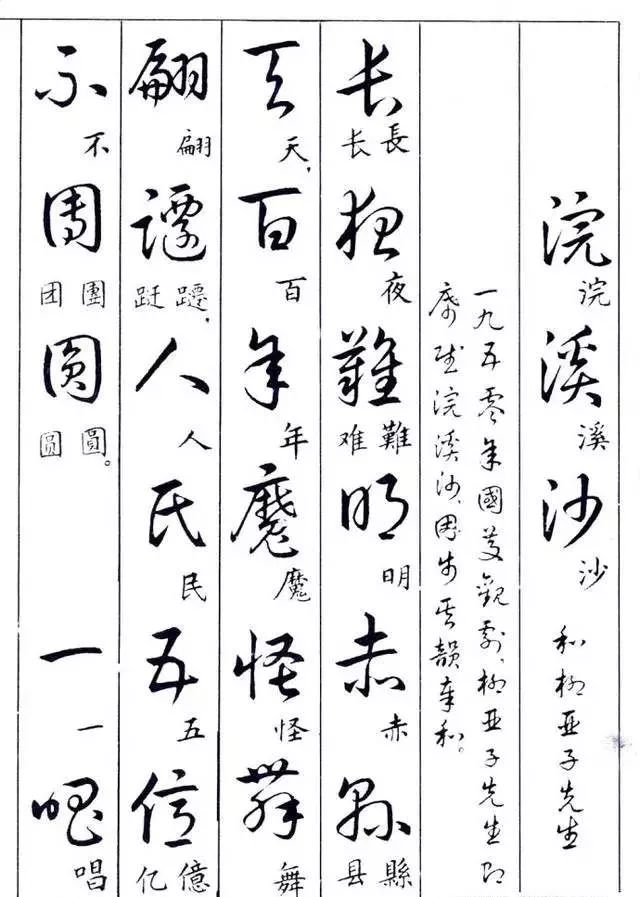 浣溪沙 和柳亚子先生
浣溪沙
一九五零年國慶觀劇，柳亚子先生即
席賦浣溪沙，因步其韻奉和。
长夜難明赤縣
長长 夜 難难 明 赤 縣县
天百年魔怪舞
天， 百 年 魔 怪 舞
翩躚人民五億
翩 躚跹， 人 民 五 億亿
不團圓 一唱
不 團团 圓圆。 一 唱